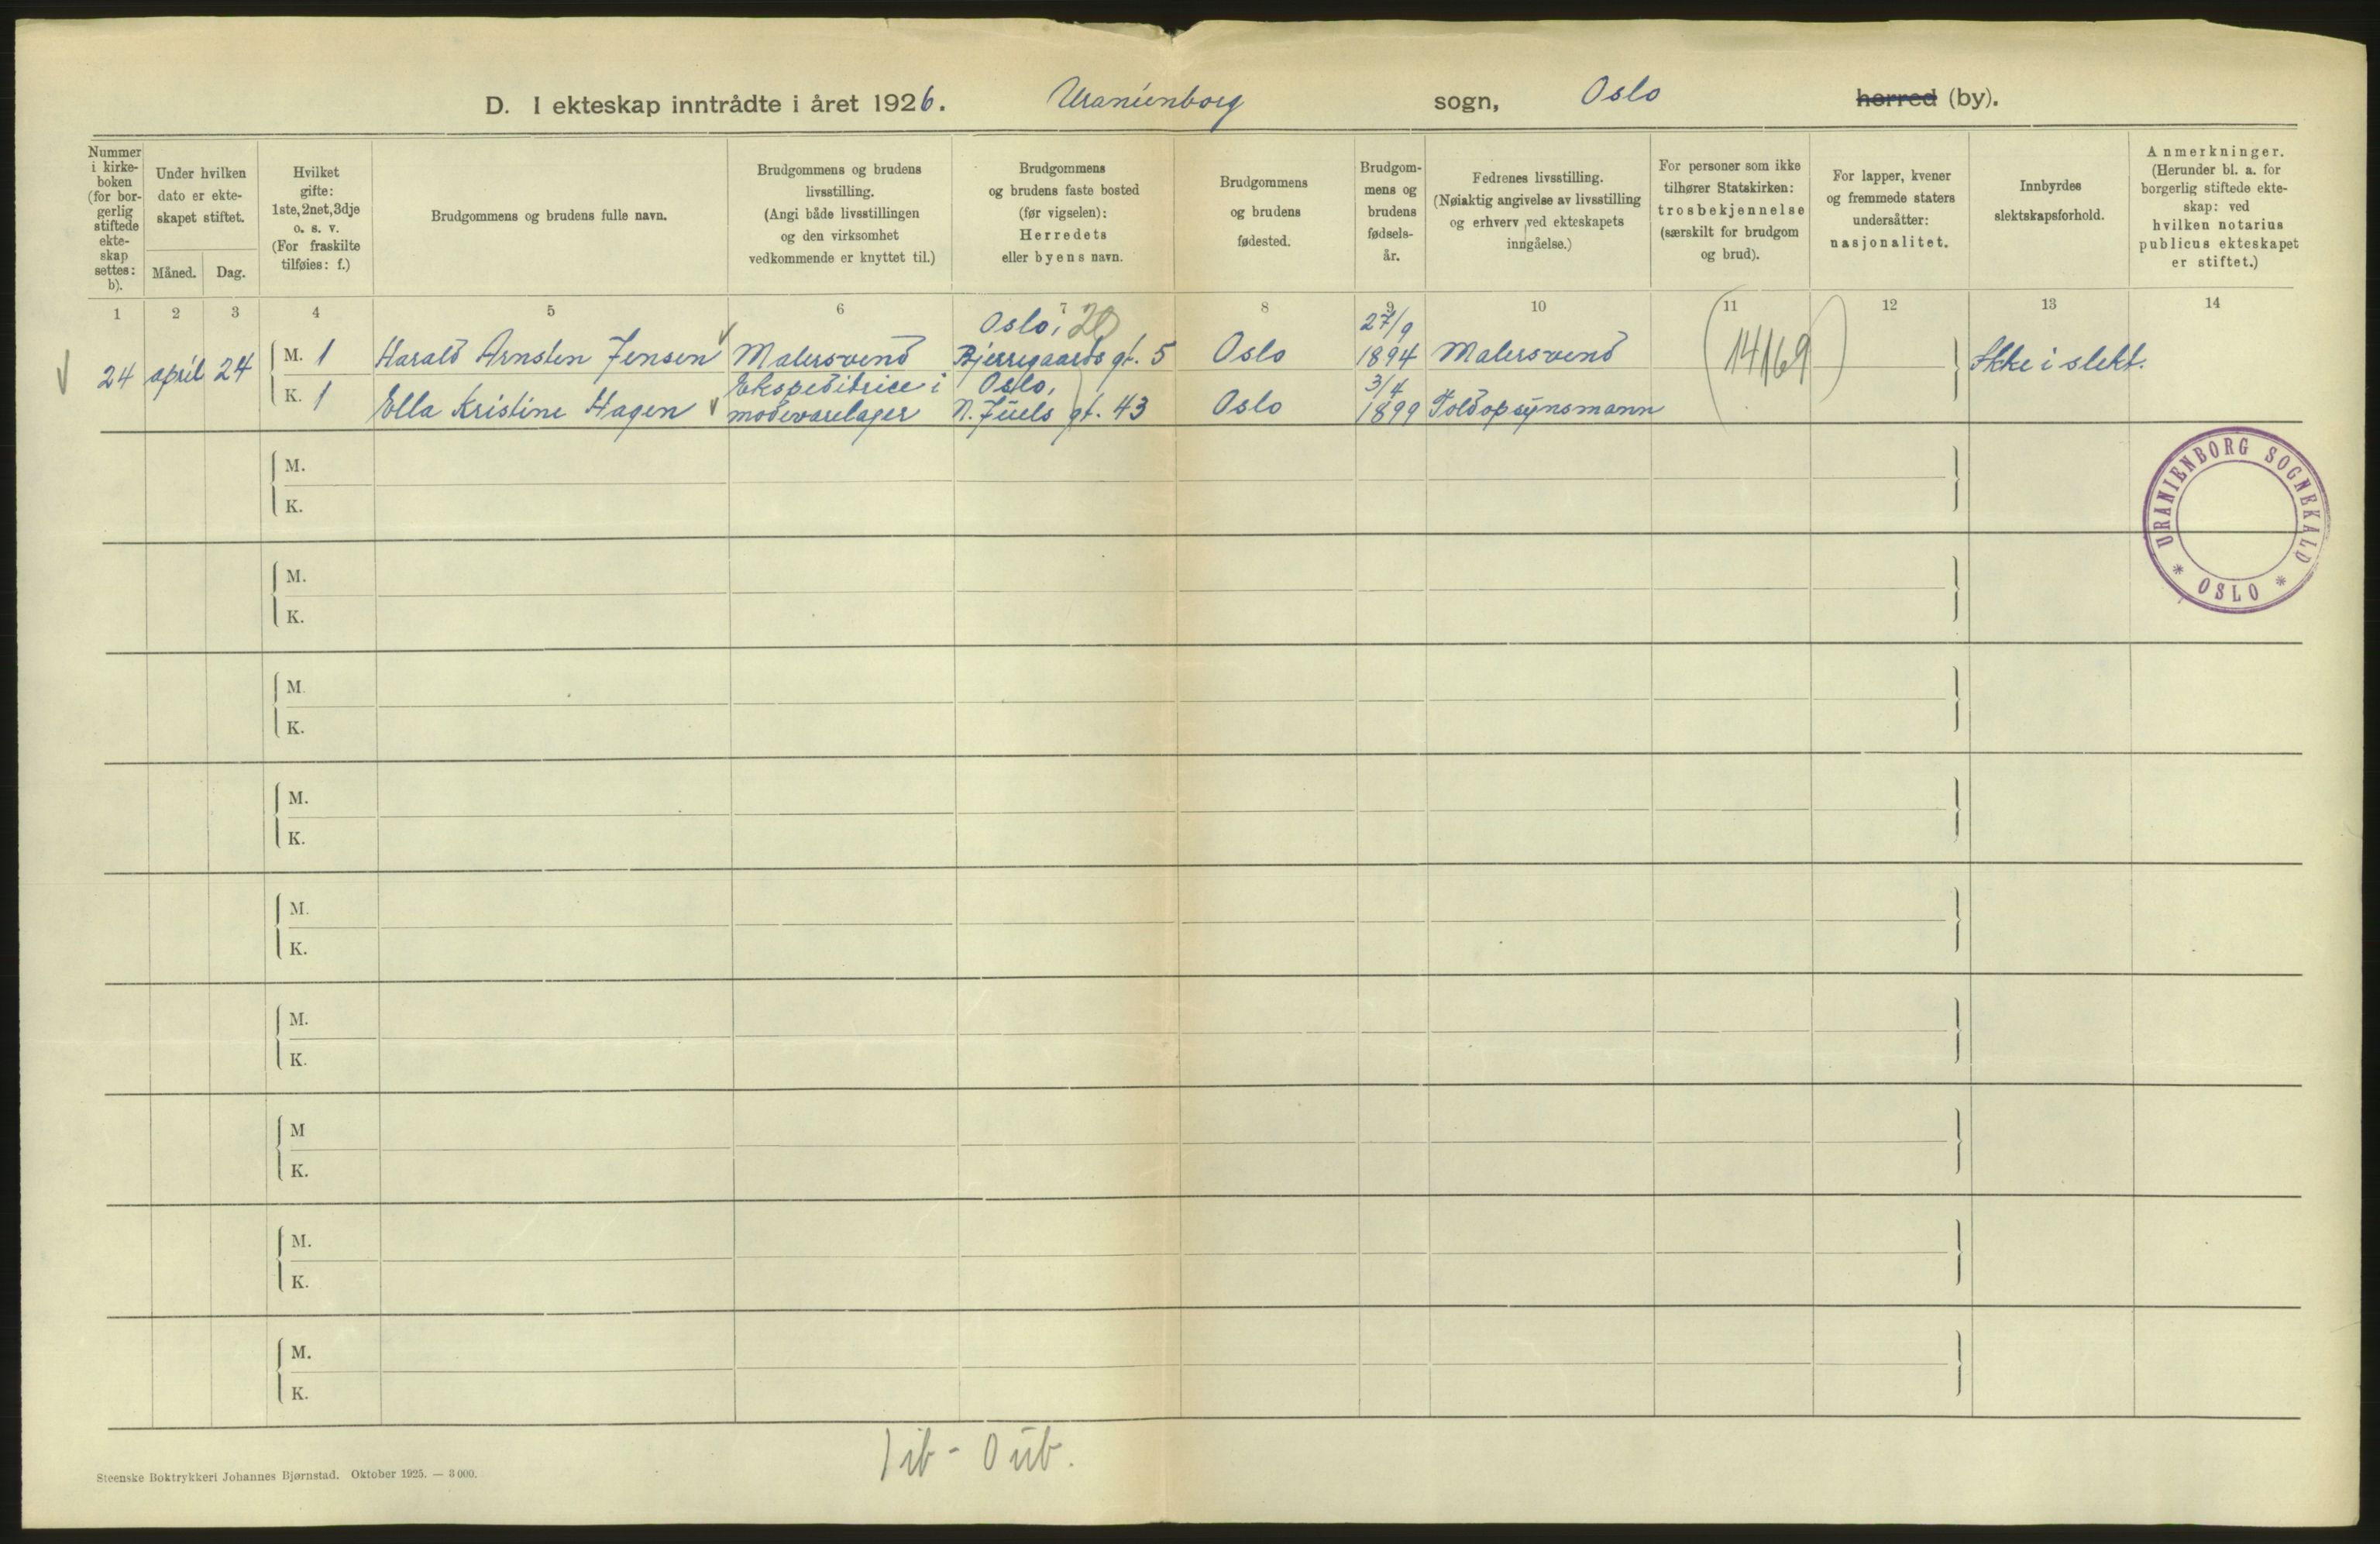 D. I ekteskap inntrådte i året 1926. Uranienborg sogn, Oslo herred (by).
Nummer i kirkeboken (for borgerlig stiftede ekteskap settes: b).
Under hvilken dato er ekteskapet stiftet.
Måned. Dag.
Hvilket gifte: 1ste, 2net, 3dje o. s. v. (For fraskilte tilføies: f.)
Brudgommens og brudens fulle navn.
Brudgommens og brudens livsstilling. (Angi både livsstillingen og den virksomhet vedkommende er knyttet til.)
Brudgommens og brudens faste bosted (før vigselen): Herredets eller byens navn.
Brudgommens og brudens fødested.
Brudgommens og brudens fødselsår.
Fedrenes livsstilling. (Nøiaktig angivelse av livsstilling og erhverv ved ekteskapets inngåelse.)
For personer som ikke tilhører Statskirken: trosbekjennelse (særskilt for brudgom og brud).
For lapper, kvener og fremmede staters undersåtter: nasjonalitet.
Innbyrdes slektskapsforhold.
Anmerkninger. (Herunder bl. a. for borgerlig stiftede ekteskap: ved hvilken notarius publicus ekteskapet er stiftet.)
1 2 3 4 5 6 7 8 9 10 11 12 13 14
Oslo, 20 27/9
24 april 24 M. 1 Harald Arnsten Jensen Malersvend Bjerregaards gt. 5 Oslo 1894 Malersvend 14/169 Ikke i slekt.
Ekspeditrice i Oslo, 3/4
K. 1 Ella Kristine Hagen motevarelager N. Juels gt. 43 Oslo 1899 Toldopsynsmann
M.
K.
M.
K.
M.
K.
M.
K.
M.
K.
M.
K.
M
K.
M.
K.
M.
K.
URANIENBORG SOGNEKALD
* OSLO *
1 ib - 0 ub.
Steenske Boktrykkeri Johannes Bjørnstad. Oktober 1925. — 3000.